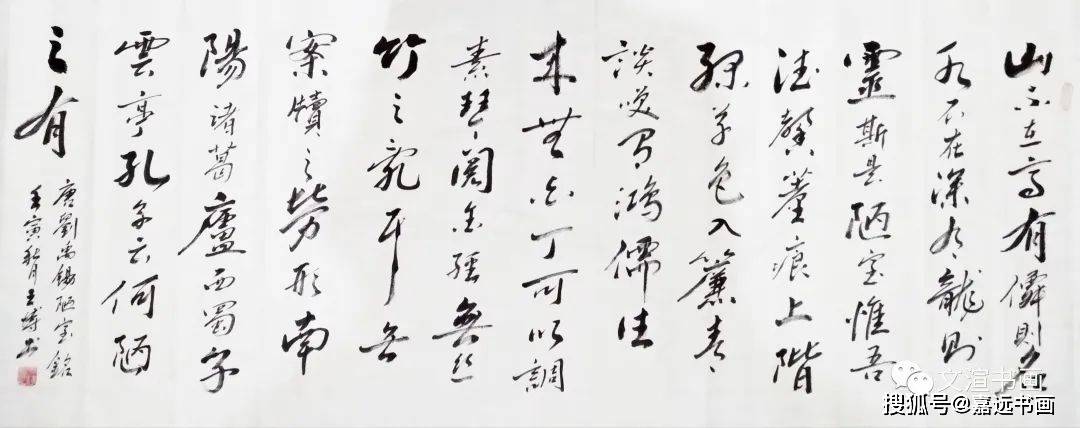 山不在高有僊則名
水不在深有龍則
靈斯是陋室惟吾
德馨薹痕上階
緑草色入簾青
談笑有鴻儒往
来無白丁可以調
素琴閱金經無絲
竹之亂耳無
案牘之勞形南
陽諸葛廬西蜀子
雲亭孔子云何陋
之有
唐劉禹錫陋室銘
壬寅秋月王书
文渲书画
搜狐号@嘉远书画